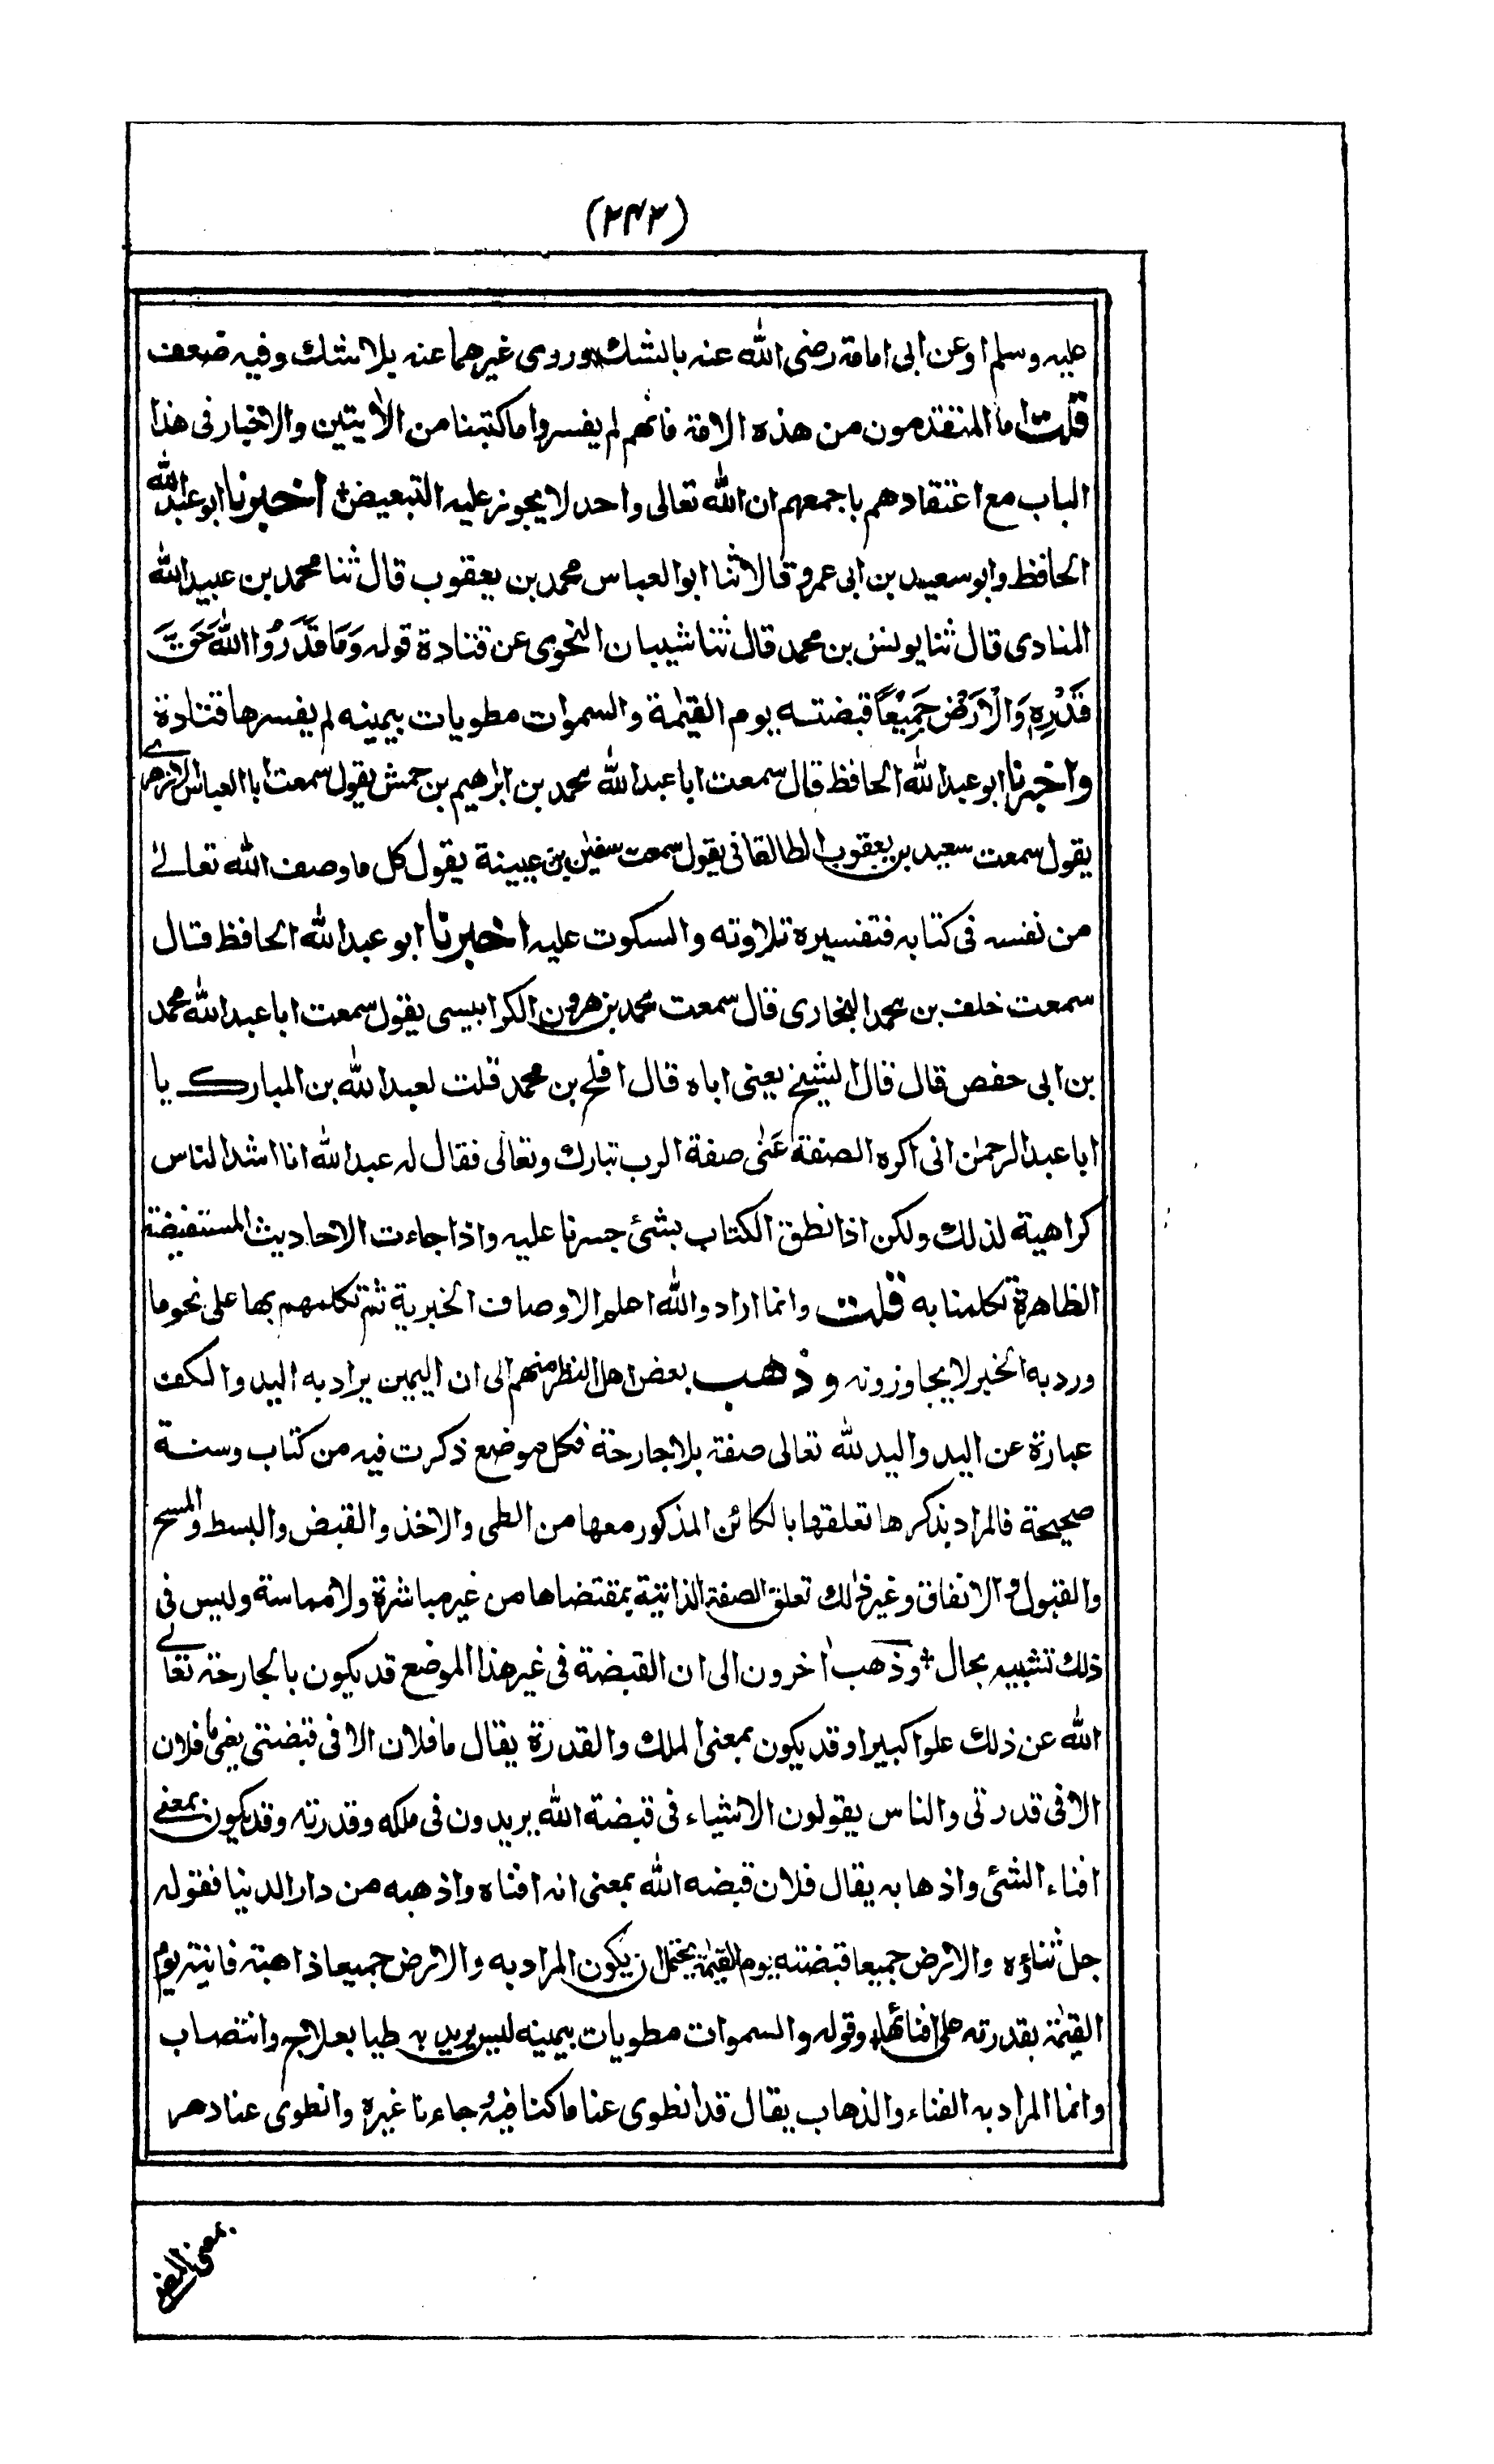 (٢٤٣)
عليه وسلم او عن ابى امامة رضى الله عنه بالشك وروى غيرهما عنه بلا شك وفيه ضعف
قلت اما المتقدمون من هذه الامة فانهم لم يفسروا ما كتبنا من الاٰيتين والاخبار فى هذا
الباب مع اعتقادهم باجمعهم ان الله تعالى واحد لا يجوز عليه التبعيض اخبرنا ابو عبد الله
الحافظ وابو سعيد بن ابى عمرو قالا ثنا ابو العباس محمد بن يعقوب قال ثنا محمد بن عبيد الله
المنادى قال ثنا يونس بن محمد قال ثنا شيبان النحوى عن قتادة قوله وَمَا قَدَرُوا اللهَ حَقَّ
قَدْرِهٖ وَالْاَرْضُ جَمِيْعًا قبضته يوم القيٰمة والسموات مطويات بيمينه لم يفسرها قتادة
واخبرنا ابو عبد الله الحافظ قال سمعت ابا عبد الله محمد بن ابراهيم بن حمش يقول سمعت ابا العباس الازهرى
يقول سمعت سعيد بن يعقوب الطالقانى يقول سمعت سفيٰن بن عيينة يقول كل ما وصف الله تعالىٰ
من نفسه فى كتابه فتفسيره تلاوته والسكوت عليه اخبرنا ابو عبد الله الحافظ قال
سمعت خلف بن محمد البخارى قال سمعت محمد بن هرون الكرابيسى يقول سمعت ابا عبد الله محمد
بن ابى حفص قال قال الشيخ يعنى اباه قال افلح بن محمد قلت لعبد الله بن المبارك يا
ابا عبد الرحمٰن انى اكره الصفة عَنٰى صفة الرب تبارك وتعالى فقال له عبد الله انا اشد الناس
كراهية لذلك ولكن اذا نطق الكتاب بشئ جسرنا عليه واذا جاءت الاحاديث المستفيضة
الظاهرة تكلمنا به قلت وانما اراد والله اعلم الاوصاف الخبرية ثم تكلمهم بها على نحو ما
ورد به الخبر لا يجاوزونه وذهب بعض اهل النظر منهم الى ان اليمين يراد به اليد والكف
عبارة عن اليد واليد لله تعالى صفة بلا جارحة فكل موضع ذكرت فيه من كتاب وسنة
صحيحة فالمراد بذكرها تعلقها بالكائن المذكور معها من الطى والاخذ والقبض والبسط والمسح
والقبول والانفاق وغير ذلك تعلق الصفة الذاتية بمقتضاها من غير مباشرة ولا مماسة وليس فى
ذلك تشبيه بحال وذهب اٰخرون الى ان القبضة فى غير هذا الموضع قد يكون بالجارحة تعالى
الله عن ذلك علوا كبيرا وقد يكون بمعنى الملك والقدرة يقال ما فلان الا فى قبضتى يعنى ما فلان
الا فى قدرتى والناس يقولون الاشياء فى قبضة الله يريدون فى ملكه وقدرته وقد يكون بمعنى
افناء الشئ واذهابه يقال فلان قبضه الله بمعنى انه افناه واذهبه من دار الدنيا فقوله
جل ثناؤه والارض جميعا قبضته يوم القيٰمة يحتمل ان يكون المراد به والارض جميعا ذاهبة فانية يوم
القيٰمة بقدرته على افنائها وقوله والسموات مطويات بيمينه ليس يريد به طيا بعلاج وانتصاب
وانما المراد به الفناء والذهاب يقال قد انطوى عنا ما كنا فيه وجاءنا غيره وانطوى عنا دهر
بمعنى المضى